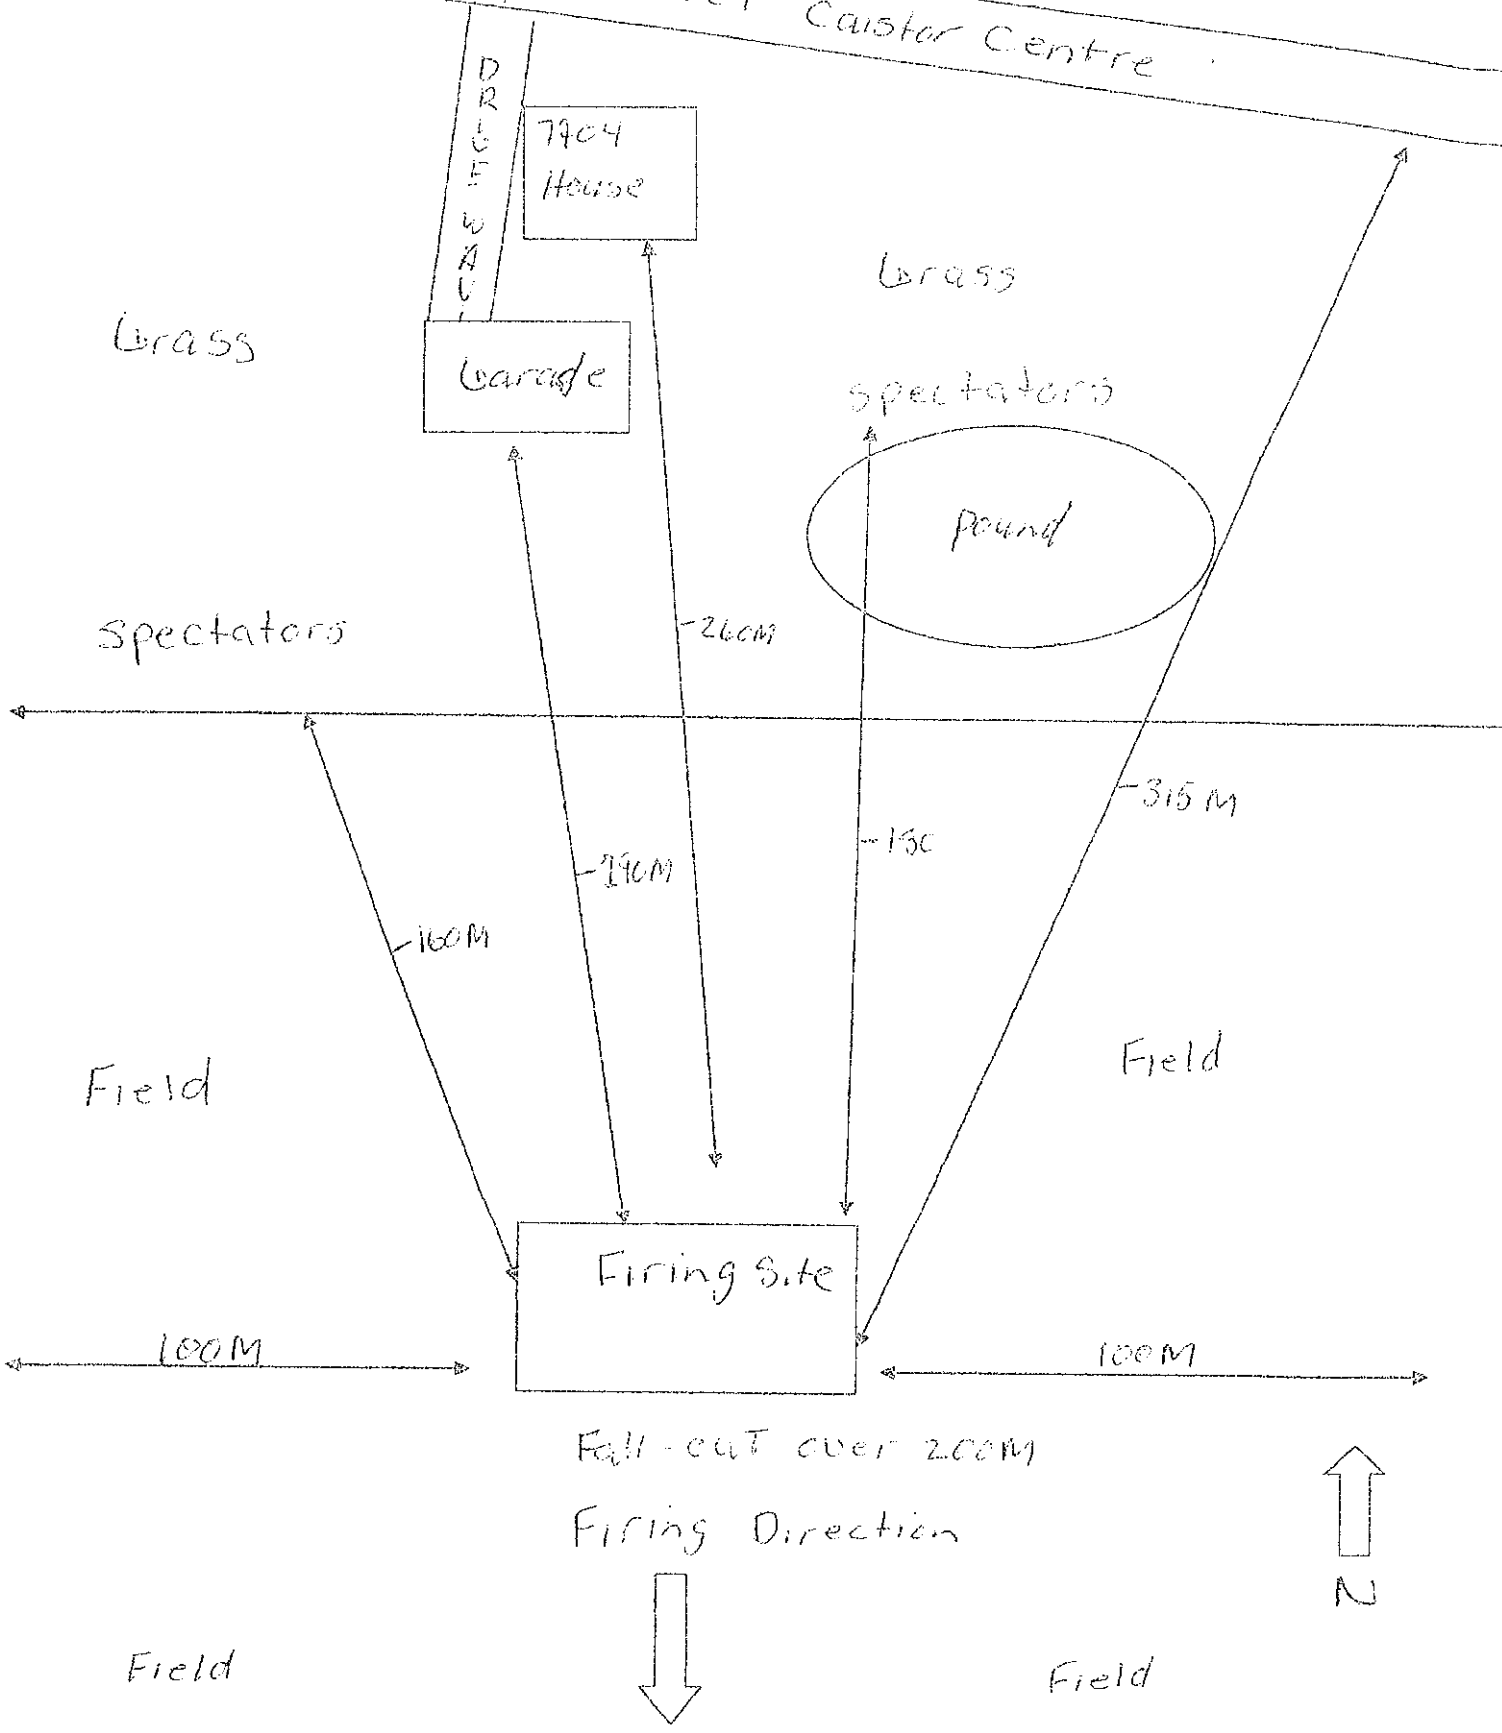 Caistor Centre
DRIVE WAY
7704
House
Grass
Grass
Garage
spectators
Pound
spectators
260M
315M
180
190M
160M
Field
Field
Firing Site
100M
100M
Fall-out over 200M
Firing Direction
N
Field
Field